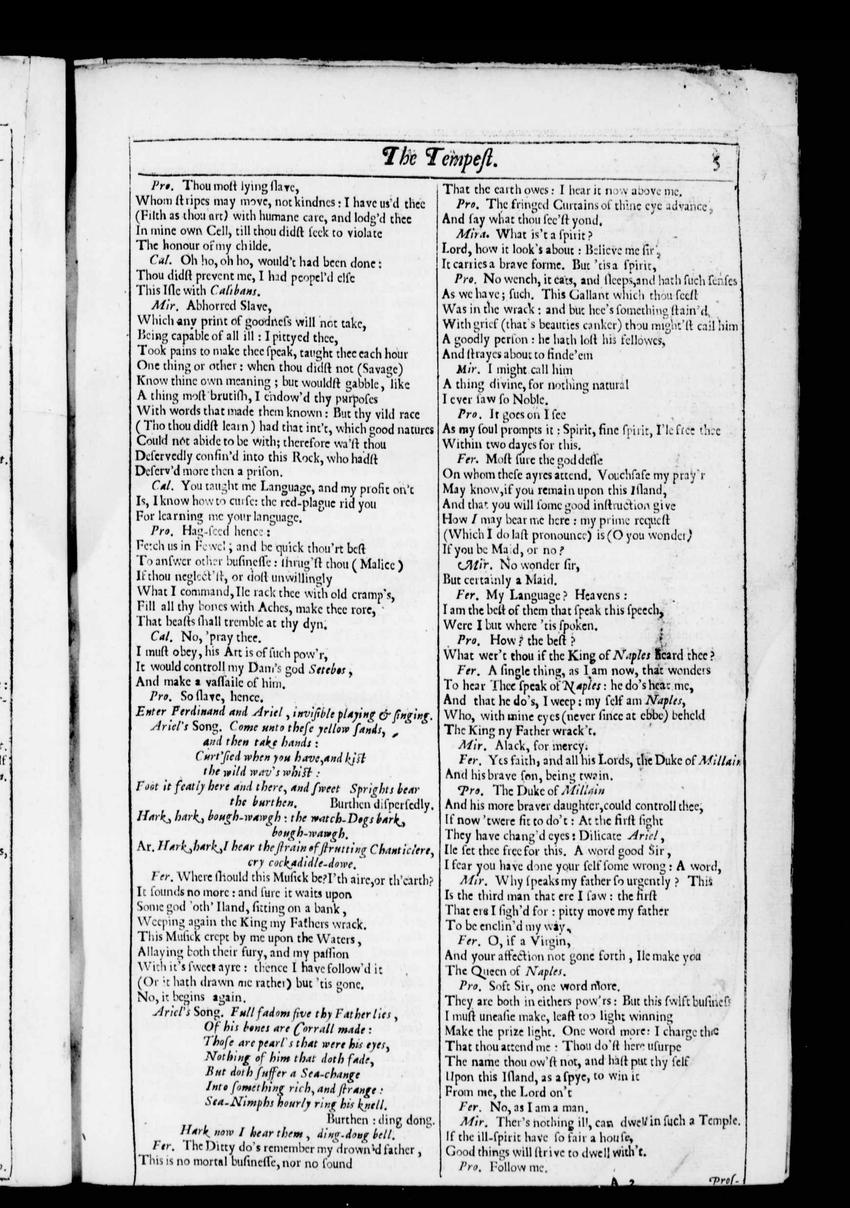 The Tempeſt.
5
Pro. Thou moſt lying ſlave,
Whom ſtripes may move, not kindnes: I have us'd thee
(Filth as thou art) with humane care, and lodg'd thee
In mine own Cell, till thou didſt ſeek to violate
The honour of my childe.
Cal. Oh ho, oh ho, would't had been done:
Thou didſt prevent me, I had peopel'd elſe
This Iſle with Calibans.
Mir. Abhorred Slave,
Which any print of goodneſs will not take,
Being capable of all ill: I pittyed thee,
Took pains to make thee ſpeak, taught thee each hour
One thing or other: when thou didſt not (Savage)
Know thine own meaning; but wouldſt gabble, like
A thing moſt brutiſh, I endow'd thy purpoſes
With words that made them known: But thy vild race
(Tho thou didſt learn) had that in't, which good natures
Could not abide to be with; therefore wa'ſt thou
Deſervedly confin'd into this Rock, who hadſt
Deſerv'd more then a priſon.
Cal. You taught me Language, and my profit on't
Is, I know how to curſe: the red-plague rid you
For learning me your language.
Pro. Hag-ſeed hence:
Fetch us in Fewel; and be quick thou'rt beſt
To anſwer other buſineſſe: ſhrug'ſt thou (Malice)
If thou neglect'ſt, or doſt unwillingly
What I command, Ile rack thee with old cramp's,
Fill all thy bones with Aches, make thee rore,
That beaſts ſhall tremble at thy dyn.
Cal. No, 'pray thee.
I muſt obey, his Art is of ſuch pow'r,
It would controll my Dam's god Setebos,
And make a vaſſaile of him.
Pro. So ſlave, hence.
Enter Ferdinand and Ariel, inviſible playing & ſinging.
Ariel's Song. Come unto theſe yellow ſands,
and then take hands:
Curt'ſied when you have, and kiſt
the wild wav's whiſt:
Foot it featly here and there, and ſweet Sprights bear
the burthen. Burthen diſperſedly.
Hark, hark, bough-wawgh: the watch-Dogs bark,
bough-wawgh.
Ar. Hark, hark, I hear the ſtrain of ſtrutting Chanticlere,
cry cockadidle-dowe.
Fer. Where ſhould this Muſick be? I'th aire, or th'earth?
It ſounds no more: and ſure it waits upon
Some god 'oth' Iland, ſitting on a bank,
Weeping again the King my Fathers wrack.
This Muſick crept by me upon the Waters,
Allaying both their fury, and my paſſion
With it's ſweet ayre: thence I have follow'd it
(Or it hath drawn me rather) but 'tis gone.
No, it begins again.
Ariel's Song. Full fadom five thy Father lies,
Of his bones are Corrall made:
Thoſe are pearl's that were his eyes,
Nothing of him that doth fade,
But doth ſuffer a Sea-change
Into ſomething rich, and ſtrange:
Sea-Nimphs hourly ring his knell.
Burthen: ding dong.
Hark now I hear them, ding-dong bell.
Fer. The Ditty do's remember my drown'd father,
This is no mortal buſineſſe, nor no ſound
That the earth owes: I hear it now above me.
Pro. The fringed Curtains of thine eye advance,
And ſay what thou ſee'ſt yond.
Mira. What is't a ſpirit?
Lord, how it look's about: Believe me ſir,
It carries a brave forme. But 'tis a ſpirit,
Pro. No wench, it eats, and ſleeps, and hath ſuch ſenſes
As we have; ſuch. This Gallant which thou ſeeſt
Was in the wrack: and but hee's ſomething ſtain'd,
With grief (that's beauties canker) thou might'ſt call him
A goodly perſon: he hath loſt his fellowes,
And ſtrayes about to finde'em
Mir. I might call him
A thing divine, for nothing natural
I ever ſaw ſo Noble.
Pro. It goes on I ſee
As my ſoul prompts it: Spirit, fine ſpirit, I'le free thee
Within two dayes for this.
Fer. Moſt ſure the goddeſſe
On whom theſe ayres attend. Vouchſafe my pray'r
May know, if you remain upon this Iſland,
And that you will ſome good inſtruction give
How I may bear me here: my prime requeſt
(Which I do laſt pronounce) is (O you wonder)
If you be Maid, or no?
Mir. No wonder ſir,
But certainly a Maid.
Fer. My Language? Heavens:
I am the beſt of them that ſpeak this ſpeech,
Were I but where 'tis ſpoken.
Pro. How? the beſt?
What wer't thou if the King of Naples heard thee?
Fer. A ſingle thing, as I am now, that wonders
To hear Thee ſpeak of Naples: he do's hear me,
And that he do's, I weep: my ſelf am Naples,
Who, with mine eyes (never ſince at ebbe) beheld
The King ny Father wrack't.
Mir. Alack, for mercy.
Fer. Yes faith, and all his Lords, the Duke of Millain
And his brave ſon, being twain.
Pro. The Duke of Millain
And his more braver daughter, could controll thee,
If now 'twere fit to do't: At the firſt ſight
They have chang'd eyes: Dilicate Ariel,
Ile ſet thee free for this. A word good Sir,
I fear you have done your ſelf ſome wrong: A word,
Mir. Why ſpeaks my father ſo urgently? This
Is the third man that ere I ſaw: the firſt
That ere I ſigh'd for: pitty move my father
To be enclin'd my way,
Fer. O, if a Virgin,
And your affection not gone forth, Ile make you
The Queen of Naples.
Pro. Soft Sir, one word more.
They are both in eithers pow'rs: But this ſwift buſineſs
I muſt uneaſie make, leaſt too light winning
Make the prize light. One word more: I charge thee
That thou attend me: Thou do'ſt here uſurpe
The name thou ow'ſt not, and haſt put thy ſelf
Upon this Iſland, as a ſpye, to win it
From me, the Lord on't
Fer. No, as I am a man.
Mir. Ther's nothing ill, can dwell in ſuch a Temple.
If the ill-ſpirit have ſo fair a houſe,
Good things will ſtrive to dwell with't.
Pro. Follow me.
A 3
Proſ-